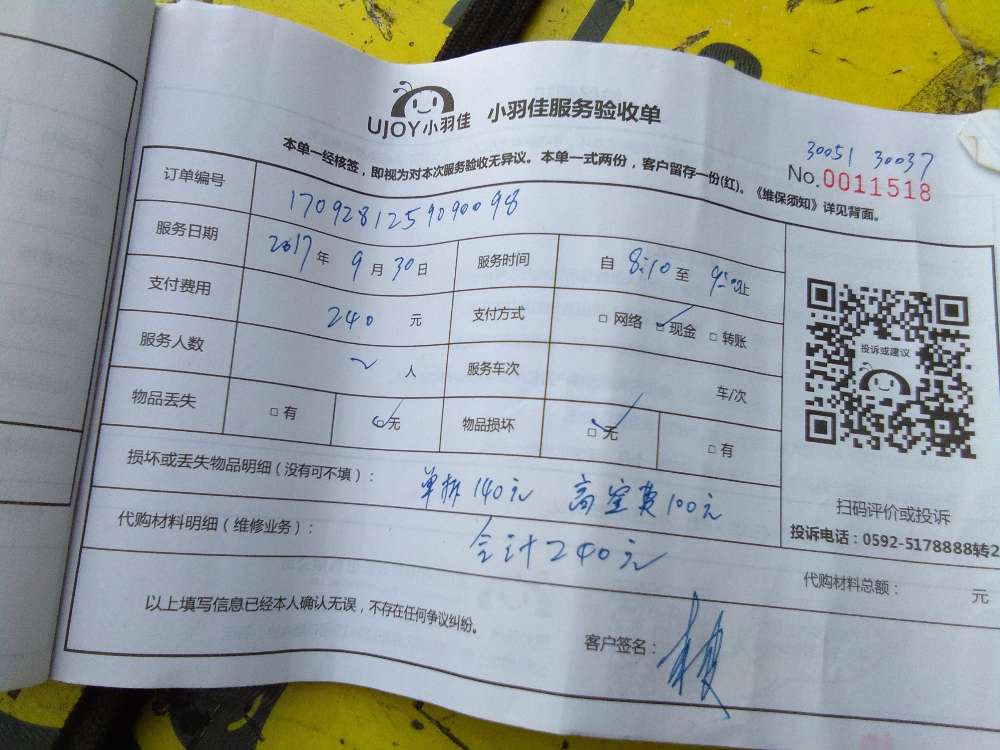 UJOY小羽佳 小羽佳服务验收单
30051 30037
No.0011518
本单一经核签，即视为对本次服务验收无异议。本单一式两份，客户留存一份(红)。《维保须知》详见背面。
订单编号 17092812590900098
服务日期 2017年 9月30日 服务时间 自 8:10 至 9:00止
支付费用 240 元 支付方式 □网络 ☑现金 □转账
服务人数 2 人 服务车次 车/次
物品丢失 □有 ☑无 物品损坏 ☑无 □有
投诉或建议
损坏或丢失物品明细（没有可不填）： 单拆140元 高空费100元
扫码评价或投诉
投诉电话：0592-5178888转2
代购材料明细（维修业务）： 合计240元
代购材料总额： 元
以上填写信息已经本人确认无误，不存在任何争议纠纷。
客户签名：